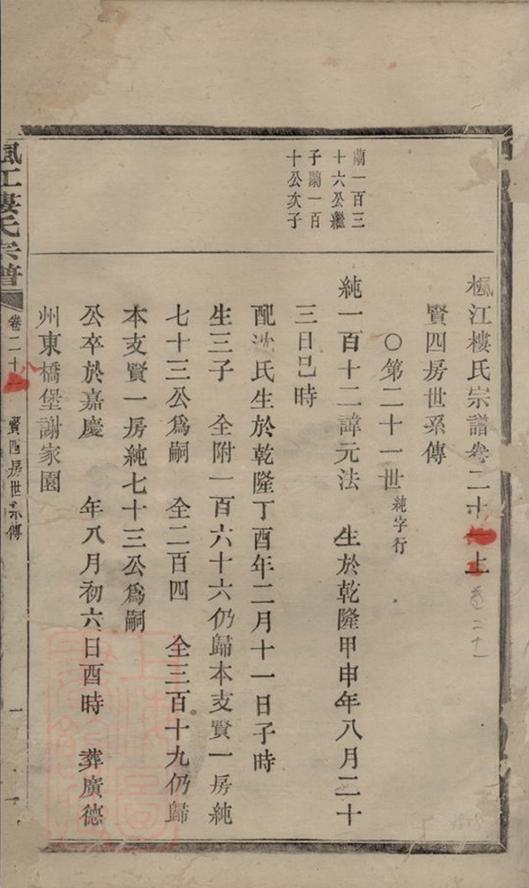 楓江樓氏宗譜卷二十一上
卷二十一
賢四房世系傳
〇第二十一世純字行
蘭一百三
十六公繼
子蘭一百
十公次子
純一百十二諱元法 生於乾隆甲申年八月二十
三日巳時
配沈氏生於乾隆丁酉年二月十一日子時
生三子 全附一百六十六仍歸本支賢一房純
七十三公爲嗣 全二百四 全三百十九仍歸
本支賢一房純七十三公爲嗣
公卒於嘉慶 年八月初六日酉時 葬廣德
州東橋堡謝家園
楓江樓氏宗譜
卷二十
賢四房世系傳
一